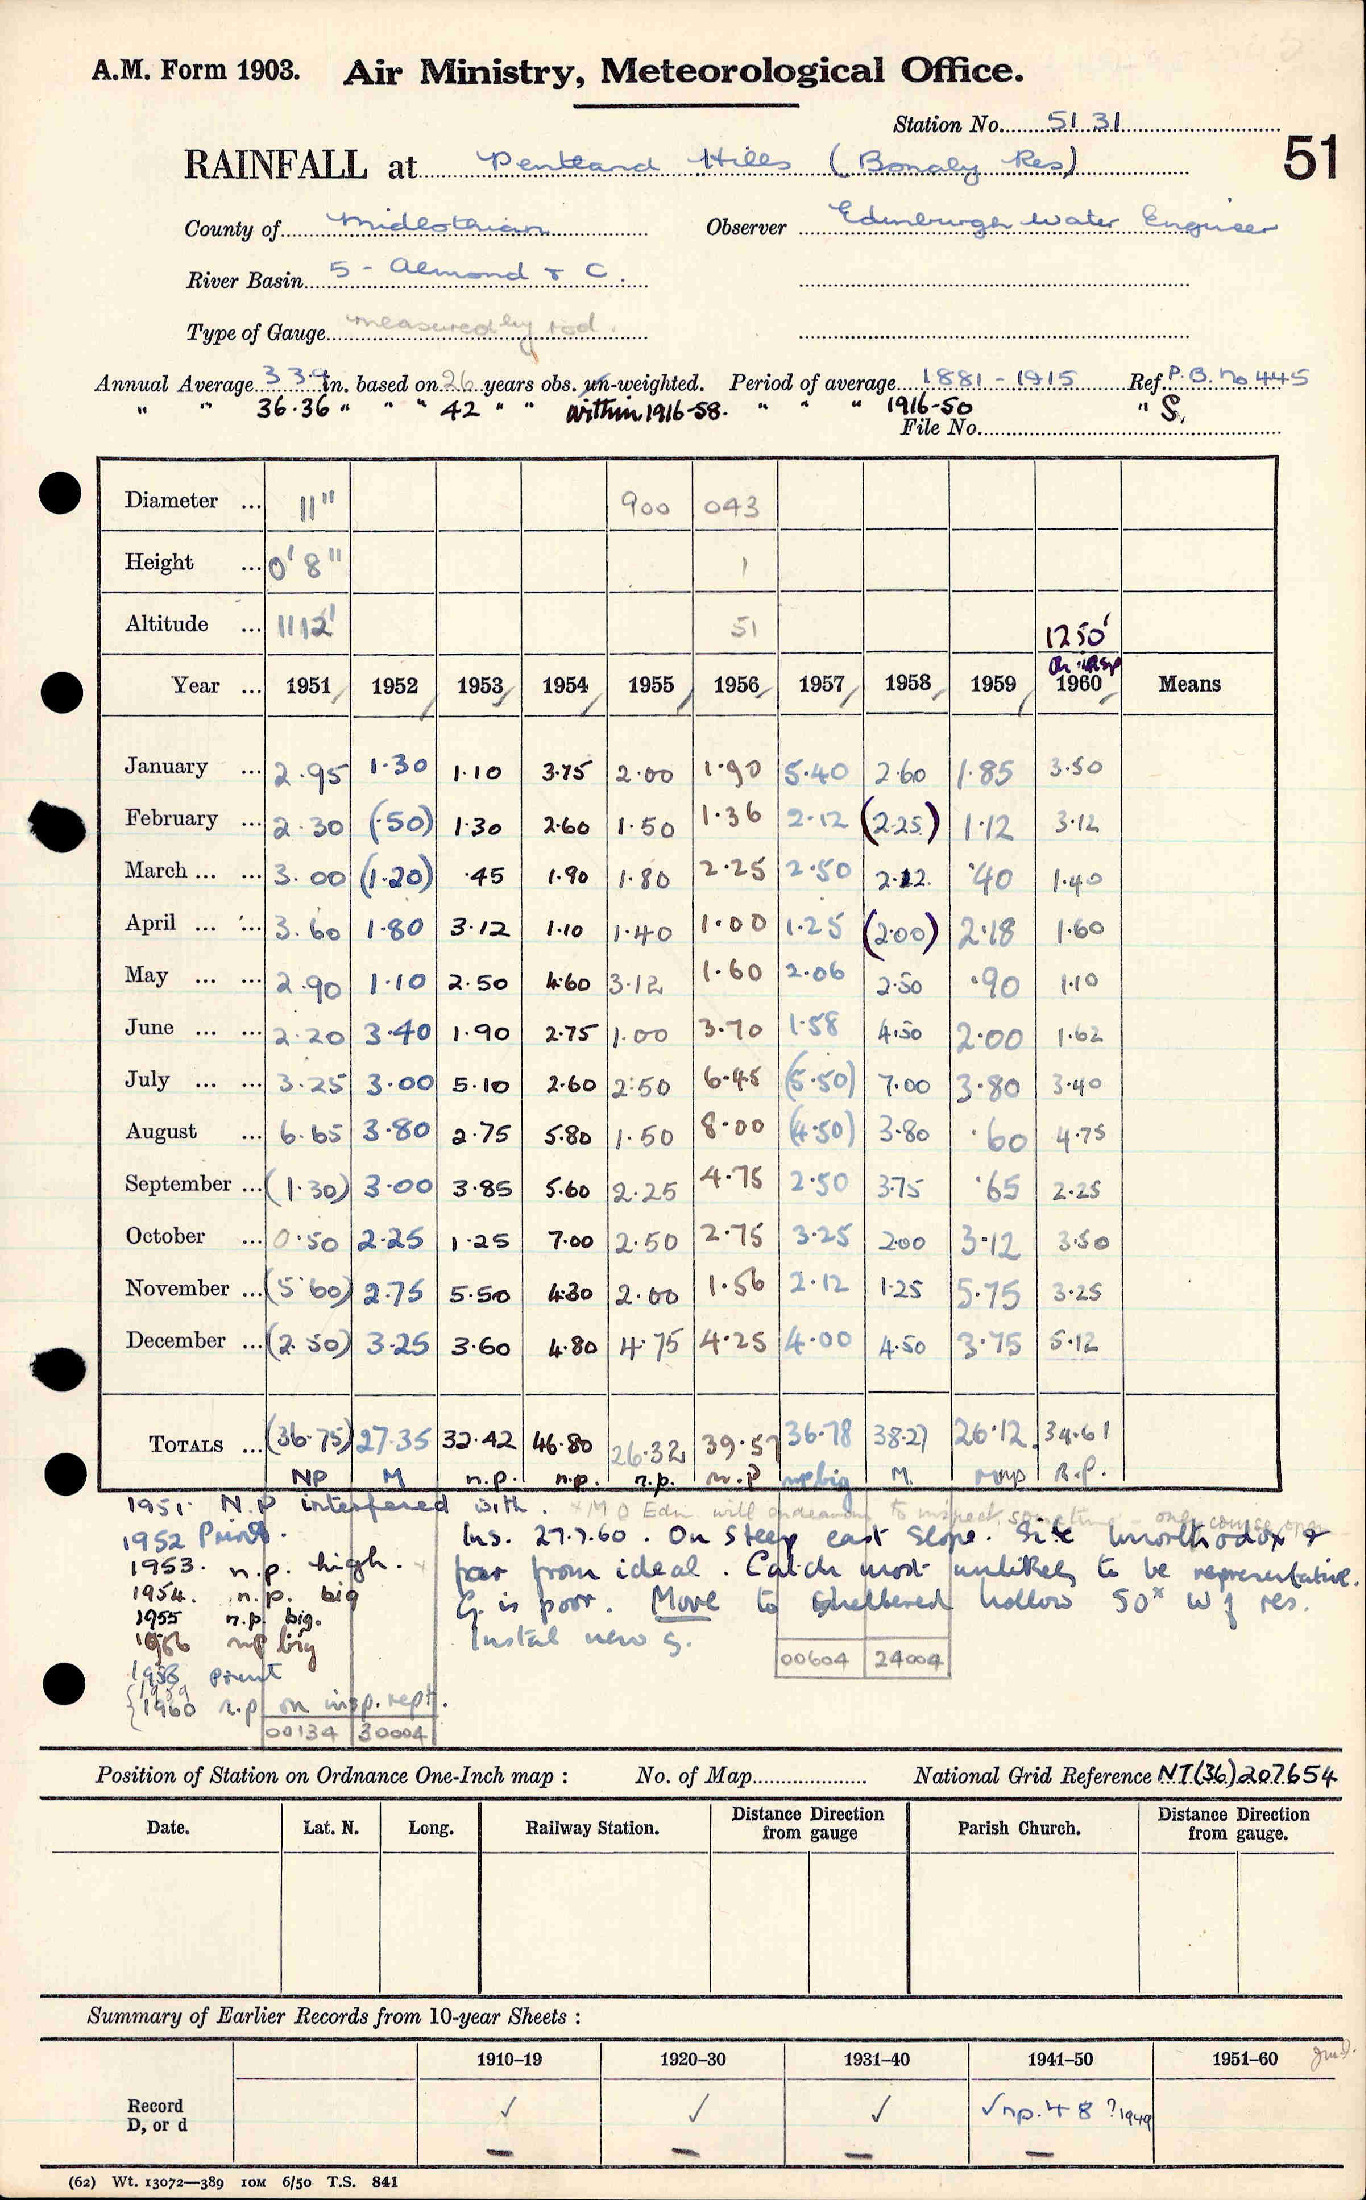 A.M. Form 1903. Air Ministry, Meteorological Office.
Station No. 5131
51
RAINFALL at Pentland Hills (Bonaly Res)
County of Midlothian Observer Edinburgh Water Engineer
River Basin 5 - Almond & C.
Type of Gauge measured by rod.
Annual Average 33.9 in. based on 26 years obs. un-weighted. Period of average 1881-1915 Ref. P.B. no 445
" " 36.36 " " " 42 " " within 1916-58. " " " 1916-50 " S.
File No.
Diameter ... 11" 900 043
Height ... 0' 8" 1
Altitude ... 1112' 51 1250'
On insp
Year ... 1951 1952 1953 1954 1955 1956 1957 1958 1959 1960 Means
January ... 2.95 1.30 1.10 3.75 2.00 1.90 5.40 2.60 1.85 3.50
February ... 2.30 (.50) 1.30 2.60 1.50 1.36 2.12 (2.25) 1.12 3.12
March ... ... 3.00 (1.20) .45 1.90 1.80 2.25 2.50 2.12 .40 1.40
April ... ... 3.60 1.80 3.12 1.10 1.40 1.00 1.25 (2.00) 2.18 1.60
May ... ... 2.90 1.10 2.50 4.60 3.12 1.60 2.06 2.50 .90 1.10
June ... ... 2.20 3.40 1.90 2.75 1.00 3.70 1.58 4.50 2.00 1.62
July ... ... 3.25 3.00 5.10 2.60 2.50 6.45 (5.50) 7.00 3.80 3.40
August ... 6.65 3.80 2.75 5.80 1.50 8.00 (4.50) 3.80 .60 4.75
September ... (1.30) 3.00 3.85 5.60 2.25 4.75 2.50 3.75 .65 2.25
October ... 0.50 2.25 1.25 7.00 2.50 2.75 3.25 2.00 3.12 3.50
November ... (5.60) 2.75 5.50 4.30 2.00 1.56 2.12 1.25 5.75 3.25
December ... (2.50) 3.25 3.60 4.80 4.75 4.25 4.00 4.50 3.75 5.12
TOTALS ... (36.75) 27.35 32.42 46.80 26.32 39.57 36.78 38.27 26.12 34.61
NP M n.p. n.p. n.p. n.p np big M. R.P.
1951. N.P interfered with. x M O Edn. will endeavour to inspect
1952 Print.
1953. n.p. high. x
1954. n.p. big
1955 n.p. big.
1956 np big
1958 Print
1959
1960 n.p on insp. rept.
Ins. 27.7.60. On steep east slope. Site unorthodox &
far from ideal. Catch most unlikely to be representative.
G. is poor. Move to sheltered hollow 50x W of res.
Instal new g.
00604 24004
00134 30004
Position of Station on Ordnance One-Inch map : No. of Map National Grid Reference NT(36)207654
Date. Lat. N. Long. Railway Station. Distance Direction from gauge Parish Church. Distance Direction from gauge.
Summary of Earlier Records from 10-year Sheets :
1910–19 1920–30 1931–40 1941–50 1951–60
Record
D, or d ✓ ✓ ✓ ✓ np. 48 ?1949
(62) Wt. 13072—389 10M 6/50 T.S. 841